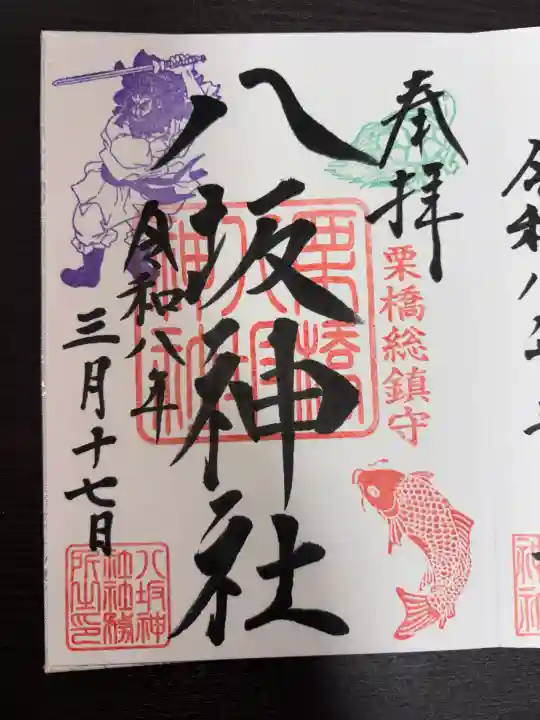 奉拝
栗橋総鎮守
八坂神社
栗橋
八坂
神社
令和八年
三月十七日
八坂神
社社務
所之印
令和八年三